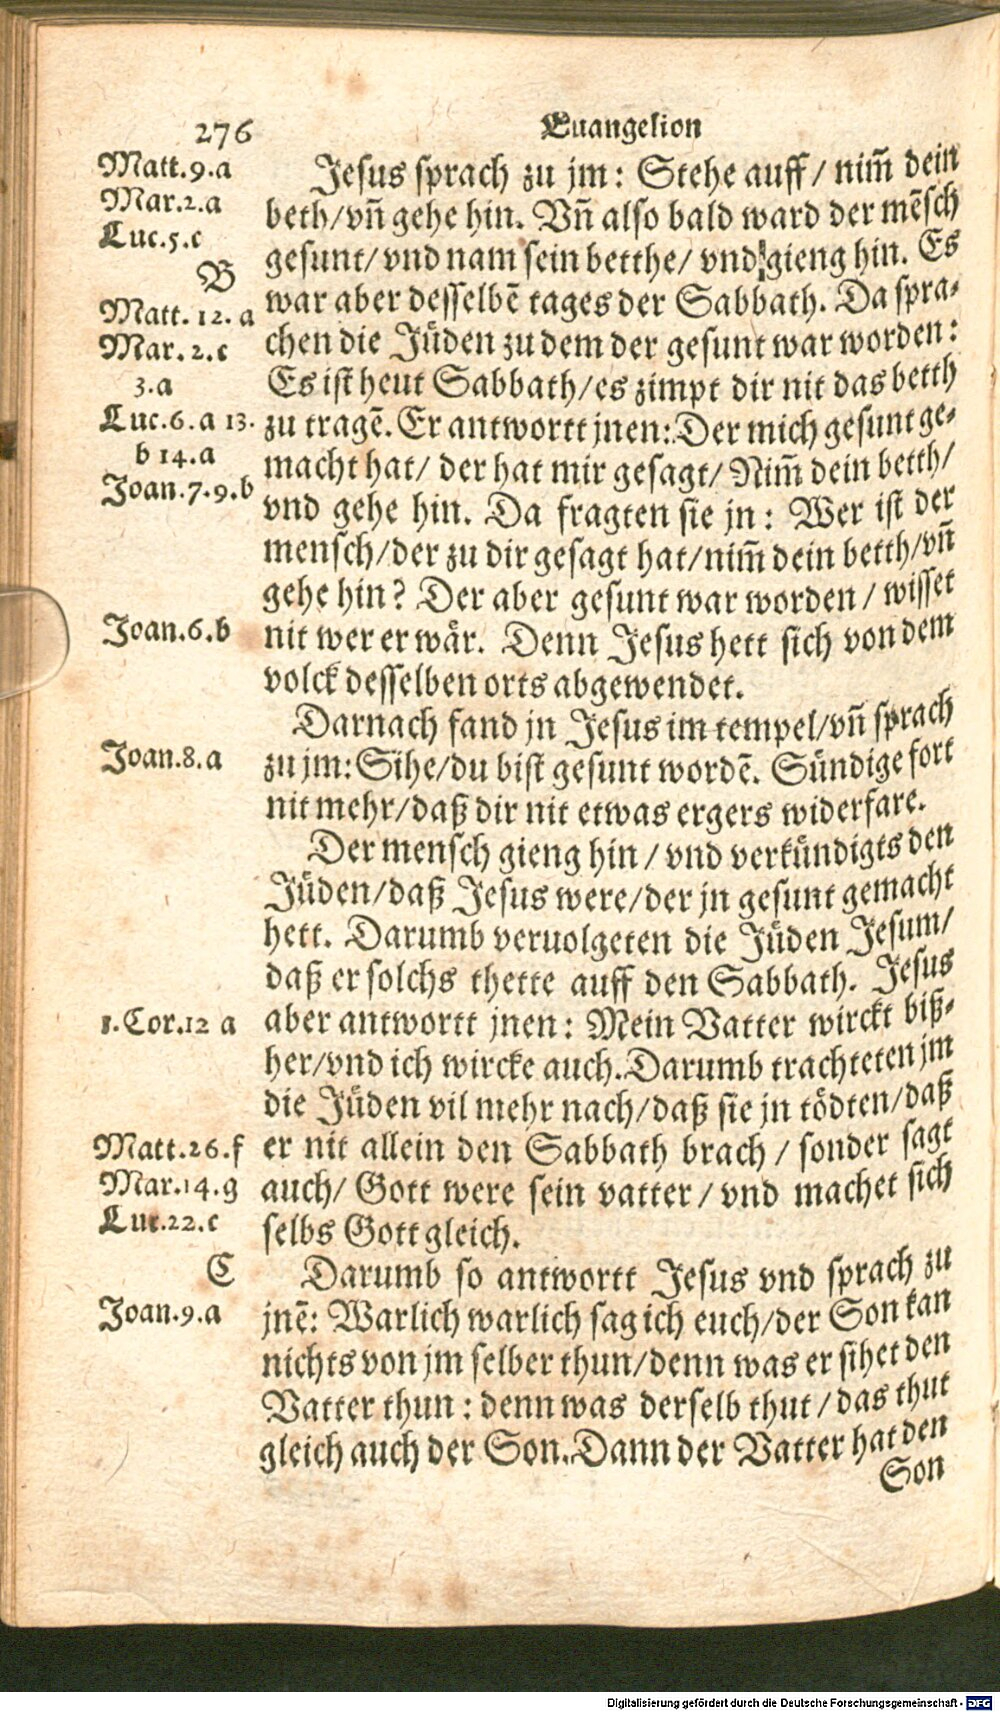 276
Euangelion
Matt.9.a
Mar.2.a
Luc.5.c
B
Matt. 12. a
Mar. 2.c
3.a
Luc.6.a 13.
b 14.a
Joan.7.9.b
Joan.6.b
Joan.8.a
1.Cor.12 a
Matt.26.f
Mar.14.g
Luc.22.c
C
Joan.9.a
Jesus sprach zu jm: Stehe auff/ nim̃ dein
beth/vñ gehe hin. Vñ also bald ward der mẽsch
gesunt/ vnd nam sein betthe/ vnd gieng hin. Es
war aber desselbẽ tages der Sabbath. Da spra-
chen die Jüden zu dem der gesunt war worden:
Es ist heut Sabbath/es zimpt dir nit das betth
zu tragẽ. Er antwortt jnen: Der mich gesunt ge-
macht hat/ der hat mir gesagt/ Nim̃ dein betth/
vnd gehe hin. Da fragten sie jn: Wer ist der
mensch/der zu dir gesagt hat/nim̃ dein betth/vñ
gehe hin? Der aber gesunt war worden/ wisset
nit wer er wär. Denn Jesus hett sich von dem
volck desselben orts abgewendet.
Darnach fand jn Jesus im tempel/vñ sprach
zu jm: Sihe/du bist gesunt wordẽ. Sündige fort
nit mehr/daß dir nit etwas ergers widerfare.
Der mensch gieng hin/ vnd verkündigts den
Jüden/daß Jesus were/der jn gesunt gemacht
hett. Darumb veruolgeten die Jüden Jesum/
daß er solchs thette auff den Sabbath. Jesus
aber antwortt jnen: Mein Vatter wirckt biß-
her/vnd ich wircke auch. Darumb trachteten jm
die Jüden vil mehr nach/daß sie jn tödten/daß
er nit allein den Sabbath brach/ sonder sagt
auch/ Gott were sein vatter/ vnd machet sich
selbs Gott gleich.
Darumb so antwortt Jesus vnd sprach zu
jnẽ: Warlich warlich sag ich euch/der Son kan
nichts von jm selber thun/denn was er sihet den
Vatter thun: denn was derselb thut/ das thut
gleich auch der Son. Dann der Vatter hat den
Son
Digitalisierung gefördert durch die Deutsche Forschungsgemeinschaft - DFG